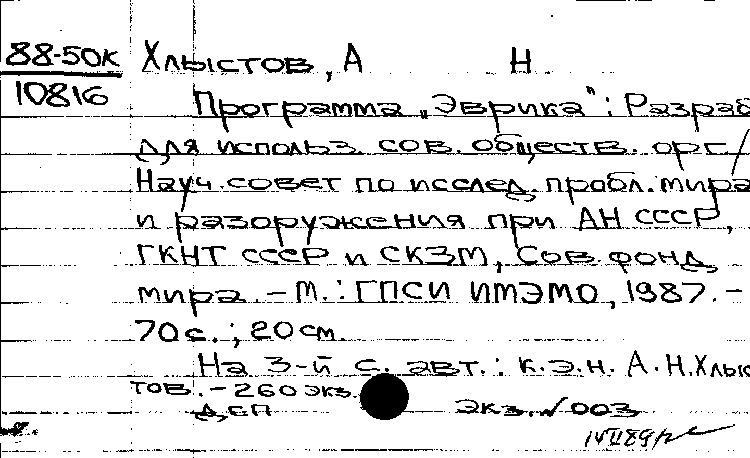 88-50К Хлыстов, А Н
10816
Программа „Эврика": Разраб
для использ. сов. обществ. орг/
Науч. совет по исслед. пробл. мира
и разоружения при АН СССР,
ГКНТ СССР и СКЗМ, Сов. фонд
мира. - М.: ГПСИ ИМЭМО, 1987. -
70 с.; 20 см.
На 3-й с. авт.: к.э.н. А.Н.Хлыс
тов. - 260 экз.
Деп экз. № 003